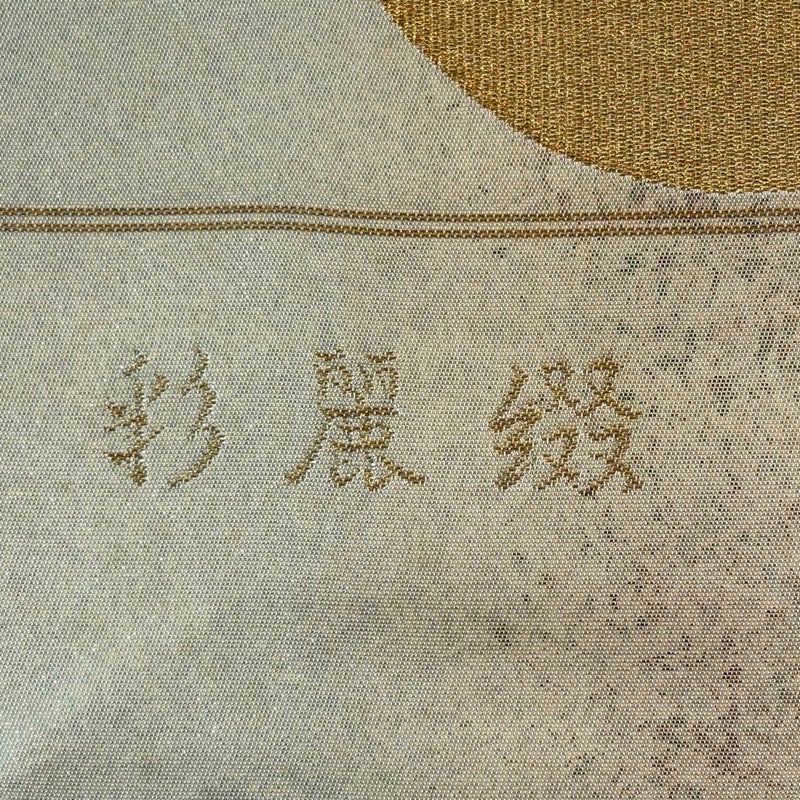 彩麗綴